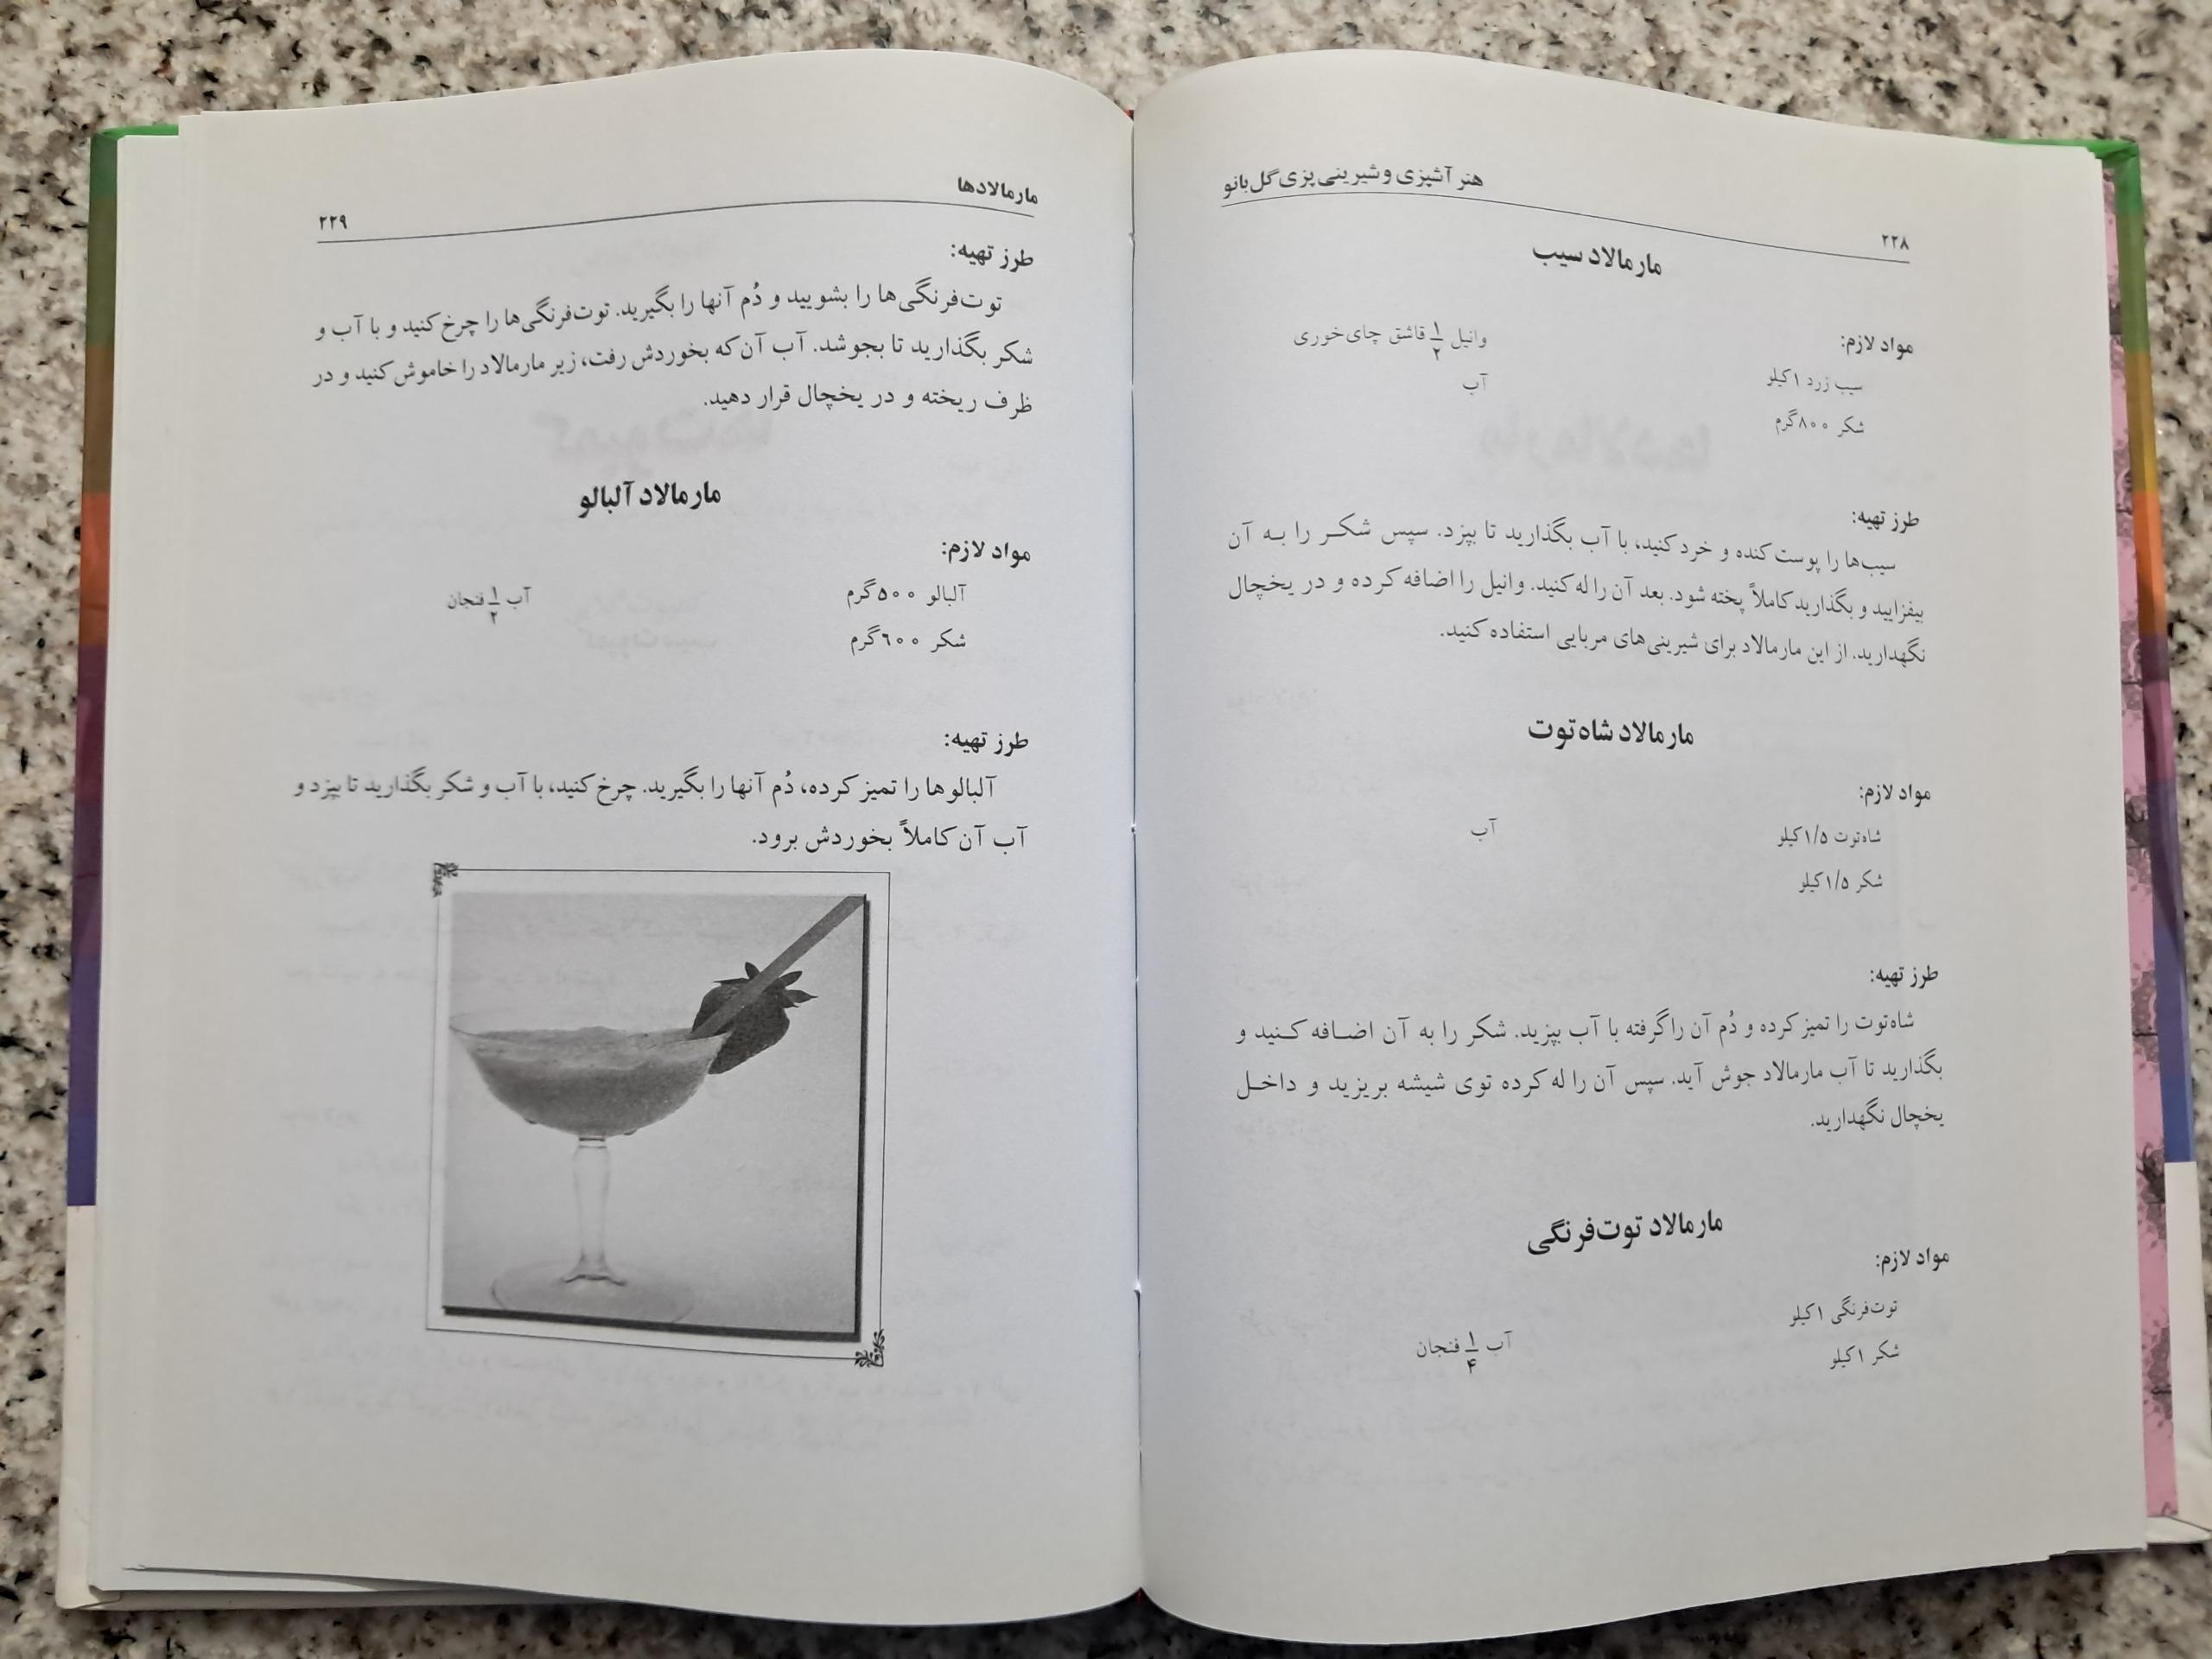 هنر آشپزی و شیرینی‌پزی گل‌بانو
۲۲۸
مارمالاد سیب
مواد لازم:
سیب زرد ۱کیلو
شکر ۸۰۰گرم
وانیل ۱/۲ قاشق چای‌خوری
آب
طرز تهیه:
سیب‌ها را پوست کنده و خرد کنید، با آب بگذارید تا بپزد. سپس شکر را به آن
بیفزایید و بگذارید کاملاً پخته شود. بعد آن را له کنید. وانیل را اضافه کرده و در یخچال
نگهدارید. از این مارمالاد برای شیرینی‌های مربایی استفاده کنید.
مارمالاد شاه‌توت
مواد لازم:
شاه‌توت ۱/۵کیلو
شکر ۱/۵کیلو
آب
طرز تهیه:
شاه‌توت را تمیز کرده و دُم آن را گرفته با آب بپزید. شکر را به آن اضافه کنید و
بگذارید تا آب مارمالاد جوش آید. سپس آن را له کرده توی شیشه بریزید و داخل
یخچال نگهدارید.
مارمالاد توت‌فرنگی
مواد لازم:
توت‌فرنگی ۱کیلو
شکر ۱کیلو
آب ۱/۴ فنجان
مارمالادها
۲۲۹
طرز تهیه:
توت‌فرنگی‌ها را بشویید و دُم آنها را بگیرید. توت‌فرنگی‌ها را چرخ کنید و با آب و
شکر بگذارید تا بجوشد. آب آن که بخوردش رفت، زیر مارمالاد را خاموش کنید و در
ظرف ریخته و در یخچال قرار دهید.
مارمالاد آلبالو
مواد لازم:
آلبالو ۵۰۰گرم
شکر ۶۰۰گرم
آب ۱/۲ فنجان
طرز تهیه:
آلبالوها را تمیز کرده، دُم آنها را بگیرید. چرخ کنید، با آب و شکر بگذارید تا بپزد و
آب آن کاملاً بخوردش برود.